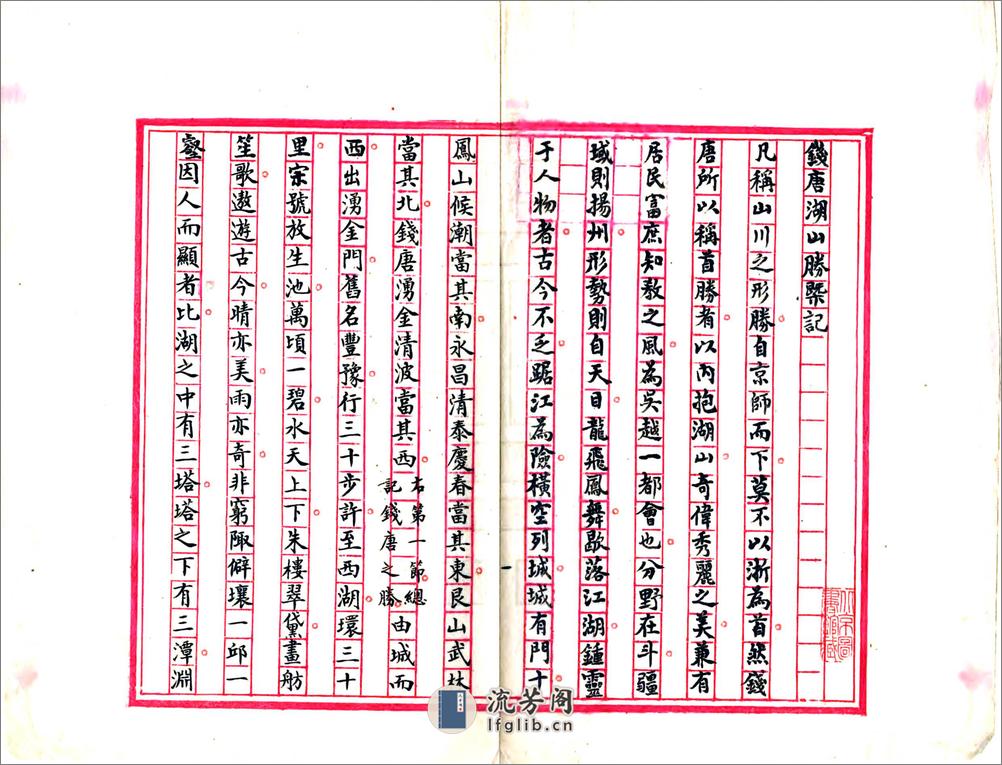 錢唐湖山勝槩記
凡稱山川之形勝自京師而下莫不以浙為首然錢
唐所以稱首勝者以內抱湖山奇偉秀麗之美兼有
居民富庶知教之風為吳越一都會也分野在斗疆
域則揚州形勢則自天目龍飛鳳舞歇落江湖鍾靈
于人物者古今不乏踞江為險橫空列城城有門十
一
鳳山候潮當其南永昌清泰慶春當其東艮山武林
當其北錢唐湧金清波當其西
右第一節總
記錢唐之勝
由城而
西出湧金門舊名豐豫行三十步許至西湖環三十
里宗號放生池萬頃一碧水天上下朱樓翠黛畫舫
笙歌遨遊古今晴亦美雨亦奇非窮陬僻壤一邱一
壑因人而顯者比湖之中有三塔塔之下有三潭淵
流芳阁
lfglib.cn